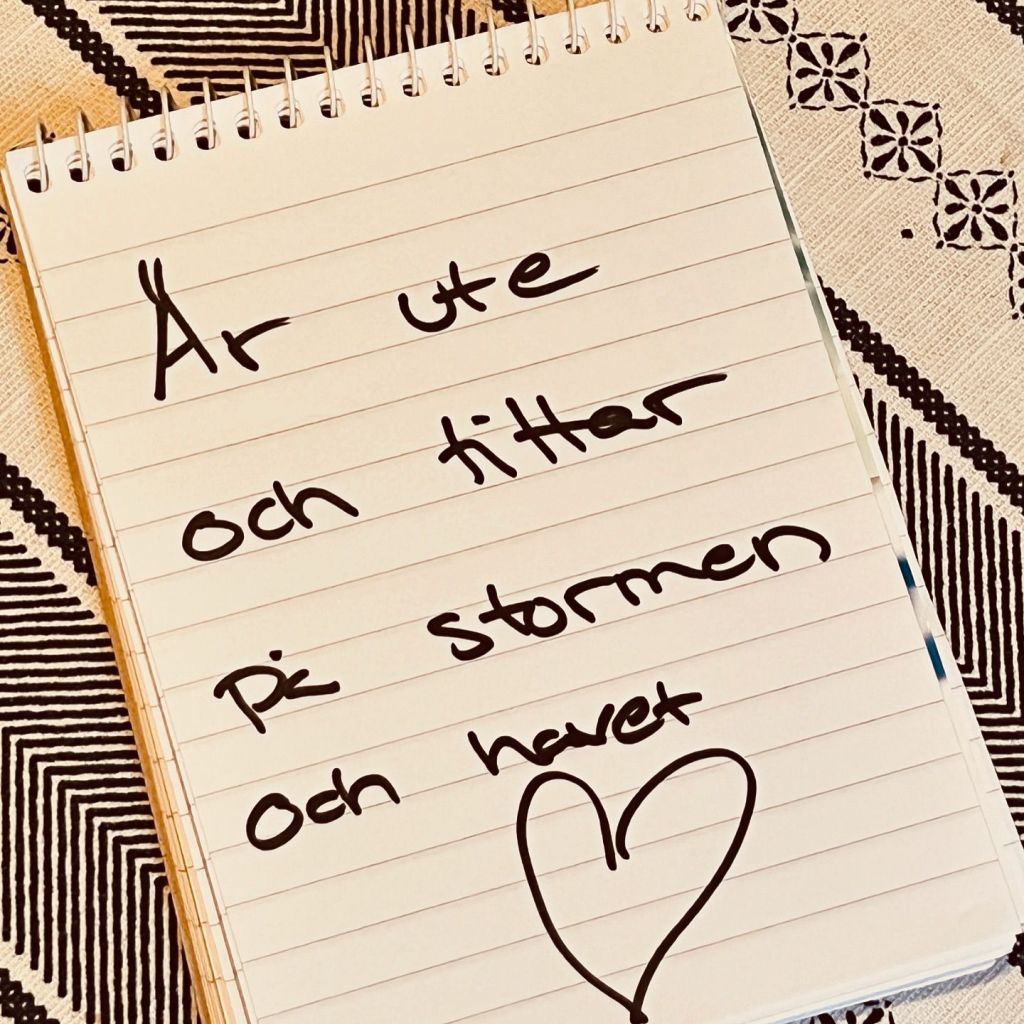 Är ute
och tittar
på stormen
och havet